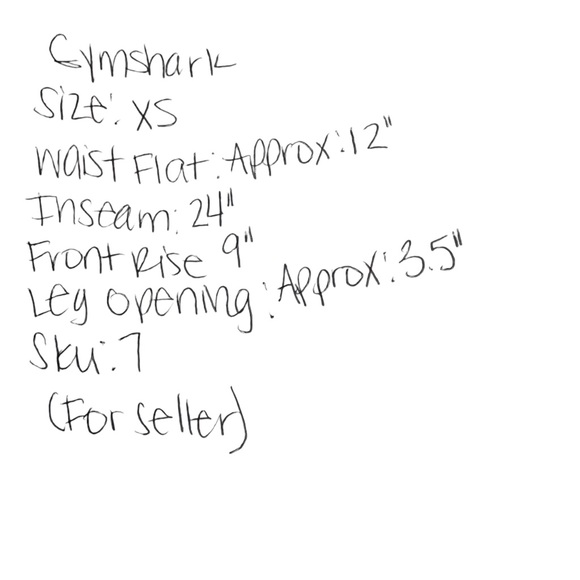 Gymshark
Size: XS
Waist Flat: Approx: 12"
Inseam: 24"
Front Rise 9"
Leg Opening: Approx: 3.5"
Sku: 7
(For seller)